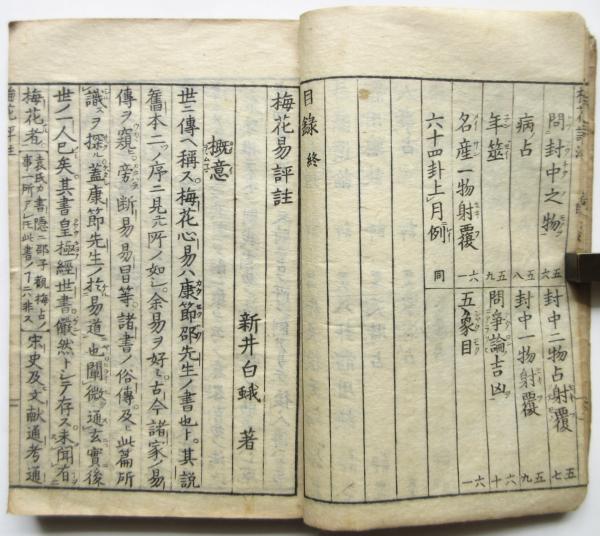 問封中之物 五六
封中二物占射覆 五七
病占 五八
封中一物射覆 五九
年筮 五九
問爭論吉凶 六十
名産一物射覆 六一
五象目 六一
六十四卦上月例 同
目錄 終
梅花易評註
新井白蛾 著
概意
世ニ傳ヘ稱ス。梅花心易ハ康節邵先生ノ書也ト。其説
舊本二ツノ序ニ見エル所ノ如シ。余易ヲ好ミ古今諸家ノ易
傳ヲ窺ヒ旁断易易冒等ノ諸書ノ俗傳及ヒ此篇所
識ヲ探ル蓋康節先生ノ於易道也闡微通玄實後
世ノ一人已矣。其書皇極經世書儼然トシテ存ス未聞有
梅花者
宋史及文献通考通
梅花評註